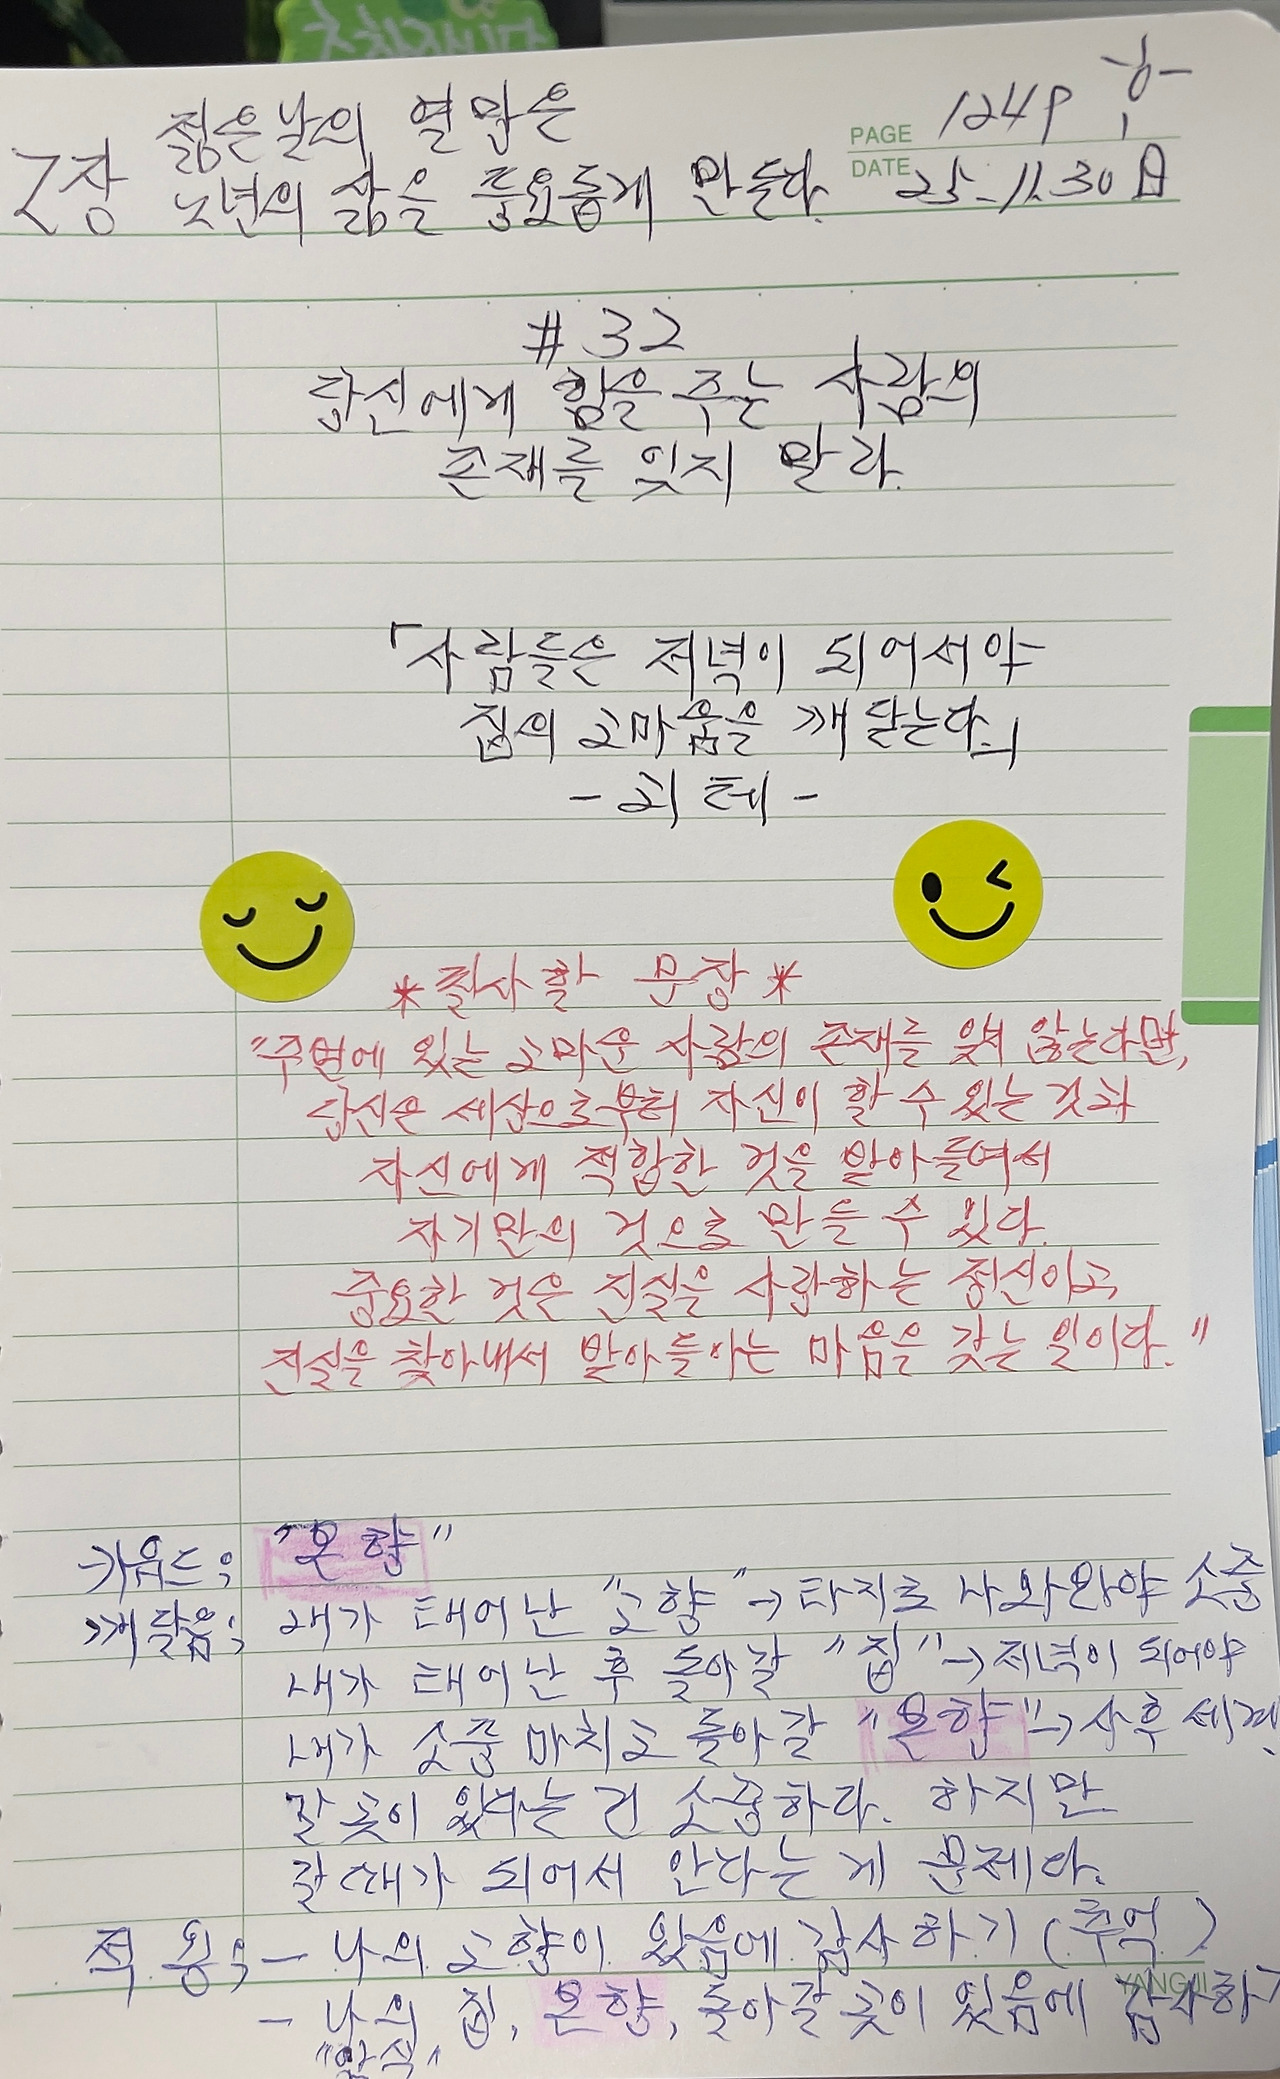 젊은날의 열망은
7장 노년의 삶을 풍요롭게 만들다.
PAGE 124P
DATE 25.11.30 日
#32
당신에게 힘을 주는 사람의
존재를 잊지 말라.
「사람들은 저녁이 되어서야
집의 고마움을 깨닫는다.」
- 괴테 -
*필사할 문장*
"주변에 있는 고마운 사람의 존재를 잊지 않는다면,
당신은 세상으로부터 자신이 할 수 있는 것과
자신에게 적합한 것을 받아들여서
자기만의 것으로 만들 수 있다.
중요한 것은 진실을 사랑하는 정신이고
진실을 찾아내서 받아들이는 마음을 갖는 일이다."
키워드; "본향"
깨달음; 내가 태어난 "고향"→타지로 나와봐야 소중
내가 태어난 후 돌아갈 "집"→저녁이 되어야
내가 소풍 마치고 돌아갈 "본향"→사후 세계.
갈 곳이 있다는 건 소중하다. 하지만
갈 때가 되어서 안다는 게 문제다.
적용; - 나의 고향이 있음에 감사하기 (추억)
YANGJI
- 나의 집, 본향, 돌아갈 곳이 있음에 감사하기
"안식"